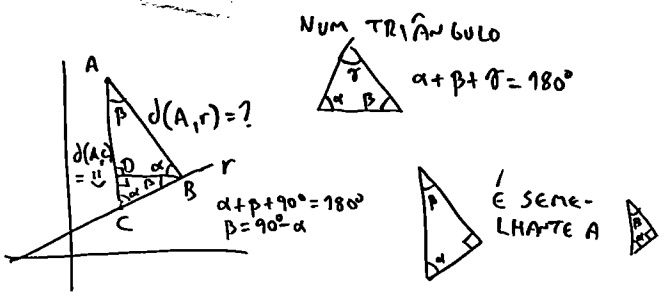 NUM TRIÂNGULO
γ
α β
α + β + γ = 180°
A
β
d(A,r) = ?
d(A,C)
= ü
D
α
β
α
B
r
C
α + β + 90° = 180°
β = 90° - α
β
α
É SEME-
LHANTE A
β
α